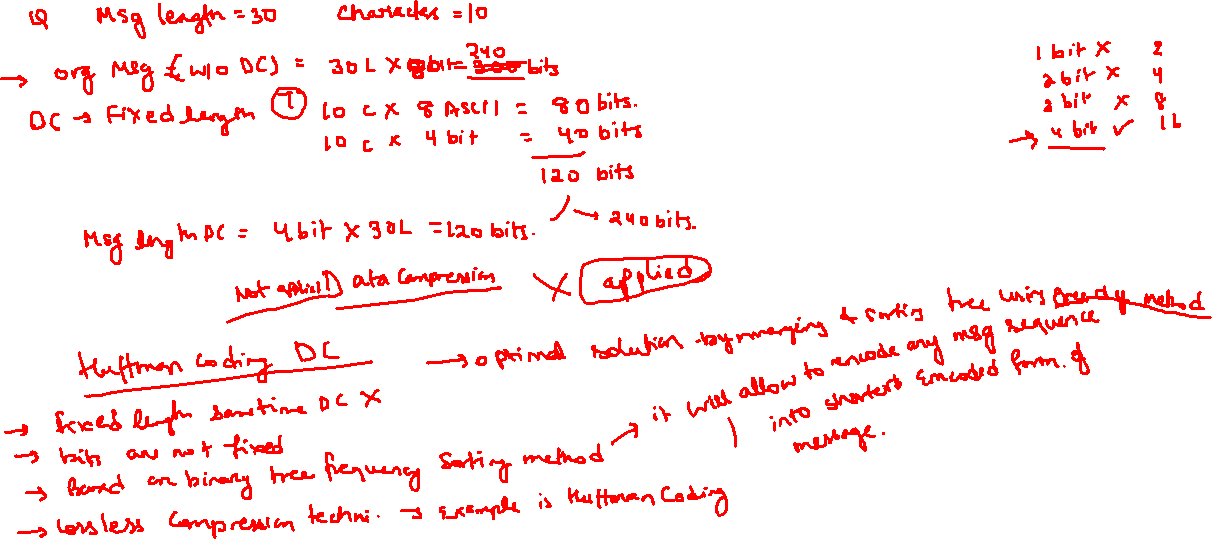 Q Msg length = 30 character = 10
→ org Msg (w/o DC) = 30L × 8bit = 240 bits
DC → Fixed length ① 10 C × 8 ASCII = 80 bits.
10 C × 4 bit = 40 bits
120 bits
→ 240 bits.
Msg length DC = 4 bit × 30L = 120 bits.
1 bit × 2
2 bit × 4
3 bit × 8
→ 4 bit ✓ 16
Not applied Data Compression × applied
Huffman coding DC → optimal solution by merging & sorting tree using Greedy method
→ fixed length sometime DC ×
→ bits are not fixed
→ Based on binary tree frequency sorting method → it will allow to encode any msg sequence
into shortest encoded form of
message.
→ lossless compression techni. → Example is Huffman Coding